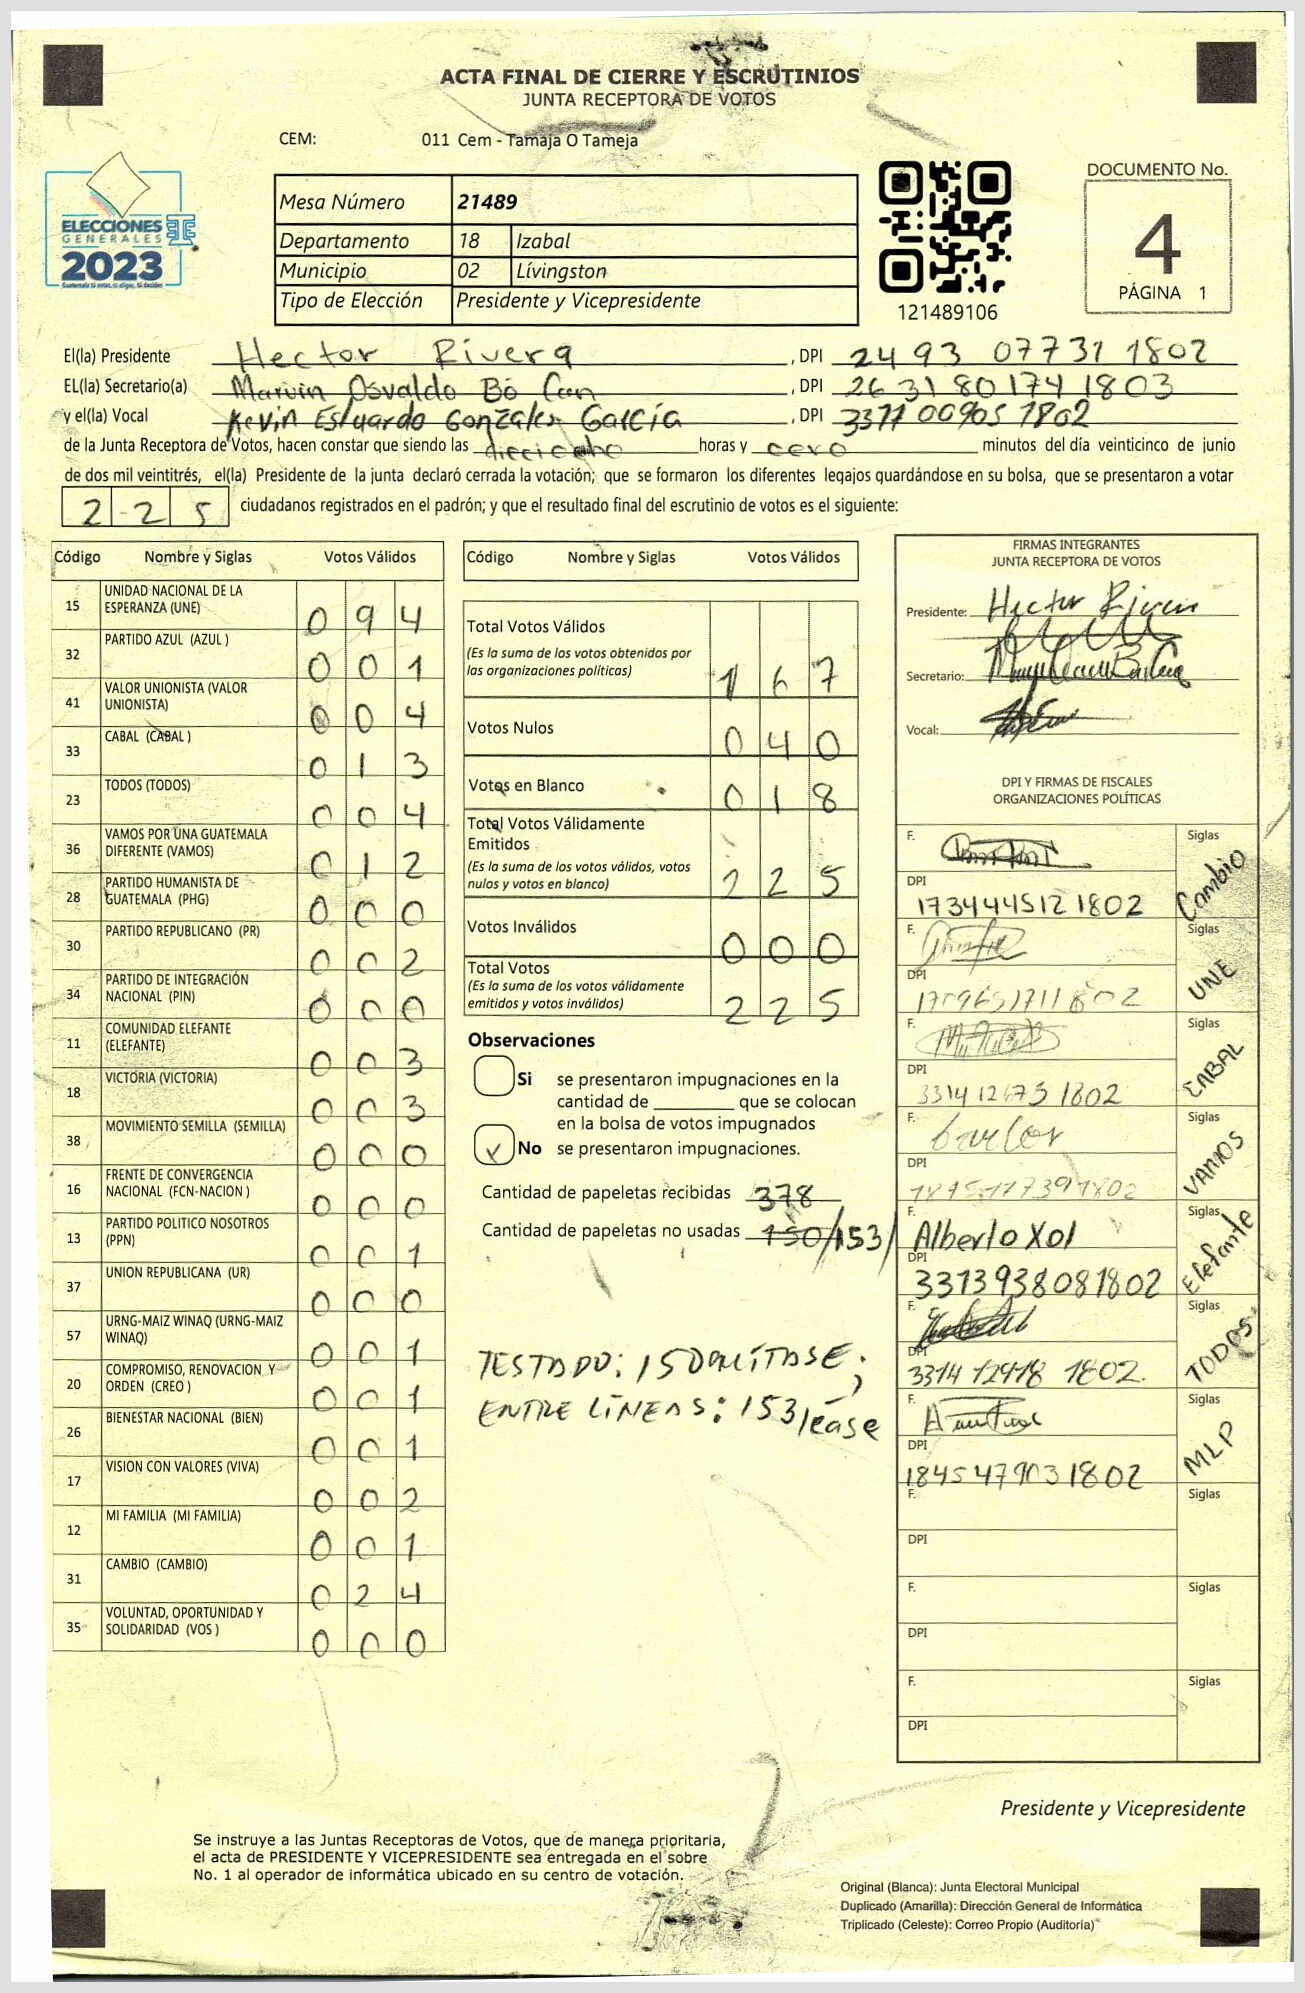 ACTA FINAL DE CIERRE Y ESCRUTINIOS
JUNTA RECEPTORA DE VOTOS
CEM: 011 Cem - Tamaja O Tameja
ELECCIONES
GENERALES
2023
Mesa Número 21489
Departamento 18 Izabal
Municipio 02 Lívingston
Tipo de Elección Presidente y Vicepresidente
121489106
DOCUMENTO No.
4
PÁGINA 1
El(la) Presidente Hector Rivera , DPI 2493 07731 1802
EL(la) Secretario(a) Marvin Osvaldo Bó Can , DPI 2631 80174 1803
y el(la) Vocal Kevin Estuardo Gonzales García , DPI 3377 00905 1802
de la Junta Receptora de Votos, hacen constar que siendo las dieciocho horas y cero minutos del día veinticinco de junio
de dos mil veintitrés, el(la) Presidente de la junta declaró cerrada la votación; que se formaron los diferentes legajos guardándose en su bolsa, que se presentaron a votar
225 ciudadanos registrados en el padrón; y que el resultado final del escrutinio de votos es el siguiente:
Código Nombre y Siglas Votos Válidos
15 UNIDAD NACIONAL DE LA ESPERANZA (UNE) 094
32 PARTIDO AZUL (AZUL ) 001
41 VALOR UNIONISTA (VALOR UNIONISTA) 004
33 CABAL (CABAL ) 013
23 TODOS (TODOS) 004
36 VAMOS POR UNA GUATEMALA DIFERENTE (VAMOS) 012
28 PARTIDO HUMANISTA DE GUATEMALA (PHG) 000
30 PARTIDO REPUBLICANO (PR) 002
34 PARTIDO DE INTEGRACIÓN NACIONAL (PIN) 000
11 COMUNIDAD ELEFANTE (ELEFANTE) 003
18 VICTORIA (VICTORIA) 003
38 MOVIMIENTO SEMILLA (SEMILLA) 000
16 FRENTE DE CONVERGENCIA NACIONAL (FCN-NACION ) 000
13 PARTIDO POLITICO NOSOTROS (PPN) 001
37 UNION REPUBLICANA (UR) 000
57 URNG-MAIZ WINAQ (URNG-MAIZ WINAQ) 001
20 COMPROMISO, RENOVACION Y ORDEN (CREO ) 001
26 BIENESTAR NACIONAL (BIEN) 001
17 VISION CON VALORES (VIVA) 002
12 MI FAMILIA (MI FAMILIA) 001
31 CAMBIO (CAMBIO) 024
35 VOLUNTAD, OPORTUNIDAD Y SOLIDARIDAD (VOS ) 000
Código Nombre y Siglas Votos Válidos
Total Votos Válidos 167
(Es la suma de los votos obtenidos por
las organizaciones políticas)
Votos Nulos 040
Votos en Blanco 018
Total Votos Válidamente
Emitidos 225
(Es la suma de los votos válidos, votos
nulos y votos en blanco)
Votos Inválidos 000
Total Votos 225
(Es la suma de los votos válidamente
emitidos y votos inválidos)
Observaciones
Si se presentaron impugnaciones en la
cantidad de ________ que se colocan
en la bolsa de votos impugnados
No se presentaron impugnaciones.
Cantidad de papeletas recibidas 378
Cantidad de papeletas no usadas 150/153/
TESTADO: 150 OMITASE;
ENTRE LÍNEAS: 153 léase
FIRMAS INTEGRANTES
JUNTA RECEPTORA DE VOTOS
Presidente: Hector Rivera
Secretario:
Vocal:
DPI Y FIRMAS DE FISCALES
ORGANIZACIONES POLÍTICAS
F. Siglas
DPI Cambio
1734445121802
F. Siglas
DPI UNE
F. Siglas
DPI CABAL
3314 12673 1802
F. Carlos Siglas
DPI VAMOS
F. Alberto Xol Siglas
DPI Elefante
3373938081802
F. Siglas
DPI TODOS
3314 12918 1802.
F. Siglas
DPI MLP
1845479031802
F. Siglas
DPI
F. Siglas
DPI
F. Siglas
DPI
Presidente y Vicepresidente
Se instruye a las Juntas Receptoras de Votos, que de manera prioritaria,
el acta de PRESIDENTE Y VICEPRESIDENTE sea entregada en el sobre
No. 1 al operador de informática ubicado en su centro de votación.
Original (Blanca): Junta Electoral Municipal
Duplicado (Amarilla): Dirección General de Informática
Triplicado (Celeste): Correo Propio (Auditoría)